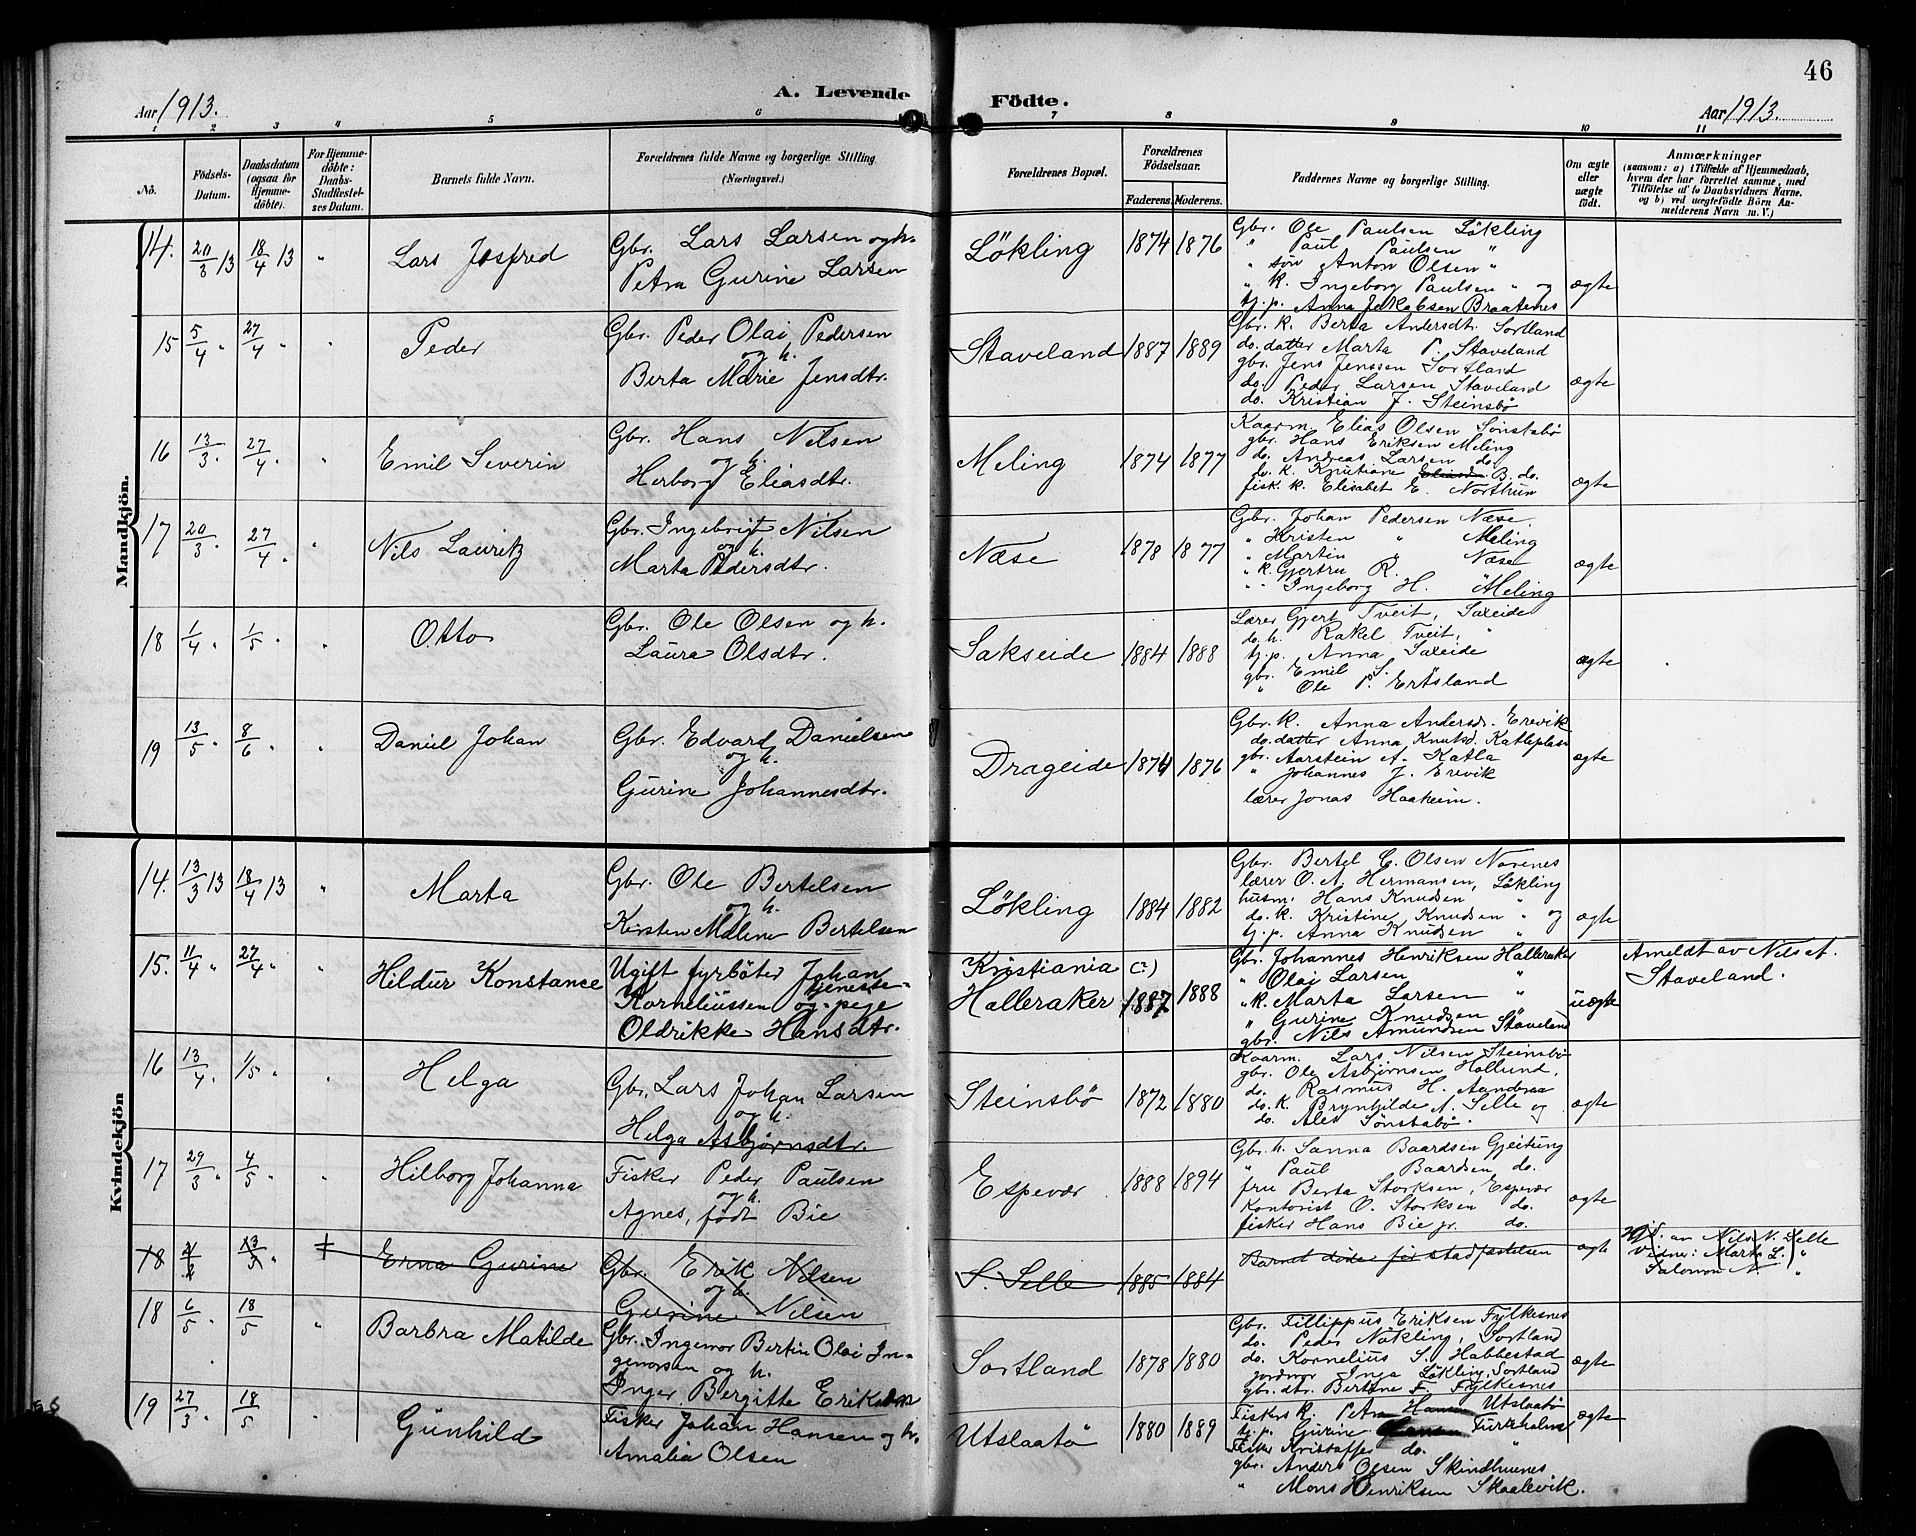 46
Aar 1913.
A. Levende Födte.
Aar 1913.
1 2 3 4 5 6 7 8 9 10 11
No.
Födsels-Datum.
Daabsdatum (ogsaa for Hjemme-döbte).
For Hjemme-döbte: Daabs-Stadfæstel-ses Datum.
Barnets fulde Navn.
Forældrenes fulde Navne og borgerlige Stilling (Næringsvei.)
Forældrenes Bopæl.
Forældrenes Födselsaar.
Faderens. Moderens.
Faddernes Navne og borgerlige Stilling.
Om ægte eller uægte født.
Anmærkninger
(saasom: a) i Tilfælde af Hjemmedaab, hvem der har forrettet samme, med Tilföielse af to Daabsvidners Navne, og b) ved uegtefödte Börn Anmelderens Navn m. V.)
Mandkjön.
14. 20/3 13 18/4 13 " Lars Josfred
Gbr. Lars Larsen og h.
Petra Gurine Larsen
Lökling 1874 1876
Gbr. Ole Paulsen Lökling
" Paul Paulsen "
" søn Anton Olsen "
" k. Ingeborg Paulsen " og
tj.p. Anna Jakobsen Braatenes
ægte
15 5/4 " 27/4 " " Peder
Gbr. Peder Olai Pedersen
og h.
Berta Marie Jensdtr.
Staveland 1887 1889
Gbr. k. Berta Andersdt. Sortland
do. datter Marta P. Staveland
gbr. Jens Jenssen Sortland
do. Peder Larsen Staveland
do. Kristian J. Steinsbö
ægte
16 13/3 " 27/4 " " Emil Severin
Gbr. Hans Nilsen
og h.
Herborg Eliasdtr.
Meling 1874 1877
Kaarm. Elias Olsen Sönstabö
gbr. Hans Eriksen Meling
do. Andreas Larsen do.
do. k. Kristiane B. do.
fisk. k. Elisabet E. Northun
ægte
17 20/3 " 27/4 " " Nils Lauritz
Gbr. Ingebrigt Nilsen
og h.
Marta Pedersdtr.
Næse 1878 1877
Gbr. Johan Pedersen Næse.
" Kristen " Meling
" Martin " Næse
" k. Gjertru R. "
" " Ingeborg H. Meling
ægte
18 1/4 " 1/5 " " Otto
Gbr. Ole Olsen og h.
Laura Olsdtr.
Sakseide 1884 1888
Lærer Gjert Tveit, Saxeide
do. h. Rakel Tveit, "
tj.p. Anna Saxeide
gbr. Emil S.
" Ole P. Ersland
ægte
19 13/5 " 8/6 " " Daniel Johan
Gbr. Edvard Danielsen
og h.
Gurine Johannesdtr.
Drageide 1874 1876
Gbr. k. Anna Andersd. Erevik
do. datter Anna Knutsd. Katleplass
gbr. Aarstein A. Katla
" Johannes J. Erevik
lærer Jonas Haaheim.
ægte
Kvindekjön
14. 13/3 13 18/4 13 " Marta
Gbr. Ole Bertelsen
og h.
Kirsten Maline Bertelsen
Lökling 1884 1882
Gbr. Bertel C. Olsen Norenes
lærer O. A. Hermansen, Lökling
husm. Hans Knudsen "
do. k. Kristine Knudsen " og
tj.p. Anna Knudsen "
ægte
15. 11/4 " 27/4 " " Hildur Konstance
Ugift fyrböter Johan
Korneliussen og tjeneste-pige
Oldrikke Hansdtr.
Kristiania
Halleraker 1887 1888
Gbr. Johannes Henriksen Halleraker
" Olai Larsen "
" k. Marta Larsen "
" Gurine Knudsen "
gbr. Nils Amundsen Staveland
uægte
Ameldt av Nils A.
Staveland.
16 13/4 " 1/5 " " Helga
Gbr. Lars Johan Larsen
og h.
Helga Asbjørnsdtr.
Steinsbö 1872 1880
Kaarm. Lars Nilsen Steinsbö
gbr. Ole Asbjørnsen Hollund,
do. Rasmus H. Aandraa
do. k. Brynhilde A. Selle og
do. Alet Sönstabö.
ægte
17 29/3 " 4/5 " " Hilborg Johanna
Fisker Peder Paulsen
og h.
Agnes, født Bie
Espevær 1888 1894
Gbr. h. Sanna Baardsen Gjeitung
" Paul Baardsen do.
fru Berta Storksen, Espevær
kontorist O. Storksen do.
fisker Hans Bie jr. do.
ægte
18 21/2 13/3 " + Erna Gurine
Gbr. Erik Nilsen
og h.
Gurine Nilsen
S. Selle 1885 1884
Barnet døde før stadfæstelsen
ægte
av Nils N. Selle
Vidner: Marta L. "
Salomon N. "
18 6/5 " 18/5 " Barbra Matilde
Gbr. Ingemor Bertin Olai In-
gemorsen og h.
Inger Bergitte Eriksen
Sortland 1878 1880
Gbr. Fillippus Eriksen Fylkesnes
do. Peder Nökling, Sortland
do. Kornelius S. Habbestad
jordmor Inga Lökling, Sortland
gbr. dtr. Bertine F. Fylkesnes
ægte
19 27/3 " 18/5 " Gunhild
Fisker Johan Hansen og h.
Amalia Olsen
Utslaatö 1880 1889
Fiskers k. Petra Hansen Utslaatö
tj.p. Gurine Turkholms
Fisker Kristoffer do. "
gbr. Anders Olsen Skindhuenes
" Mons Henriksen Skaalevik.
ægte